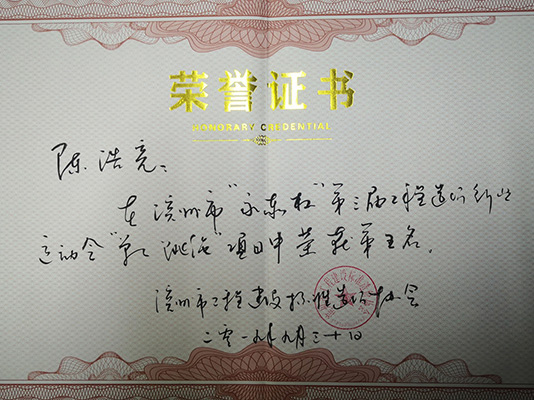 荣誉证书
HONORARY CREDENTIAL
陈浩亮:
在滨州市"永东杯"第三届工程造价行业
运动会"项目中荣获第五名。
滨州市工程建设标准造价协会
二零一九年九月三十日